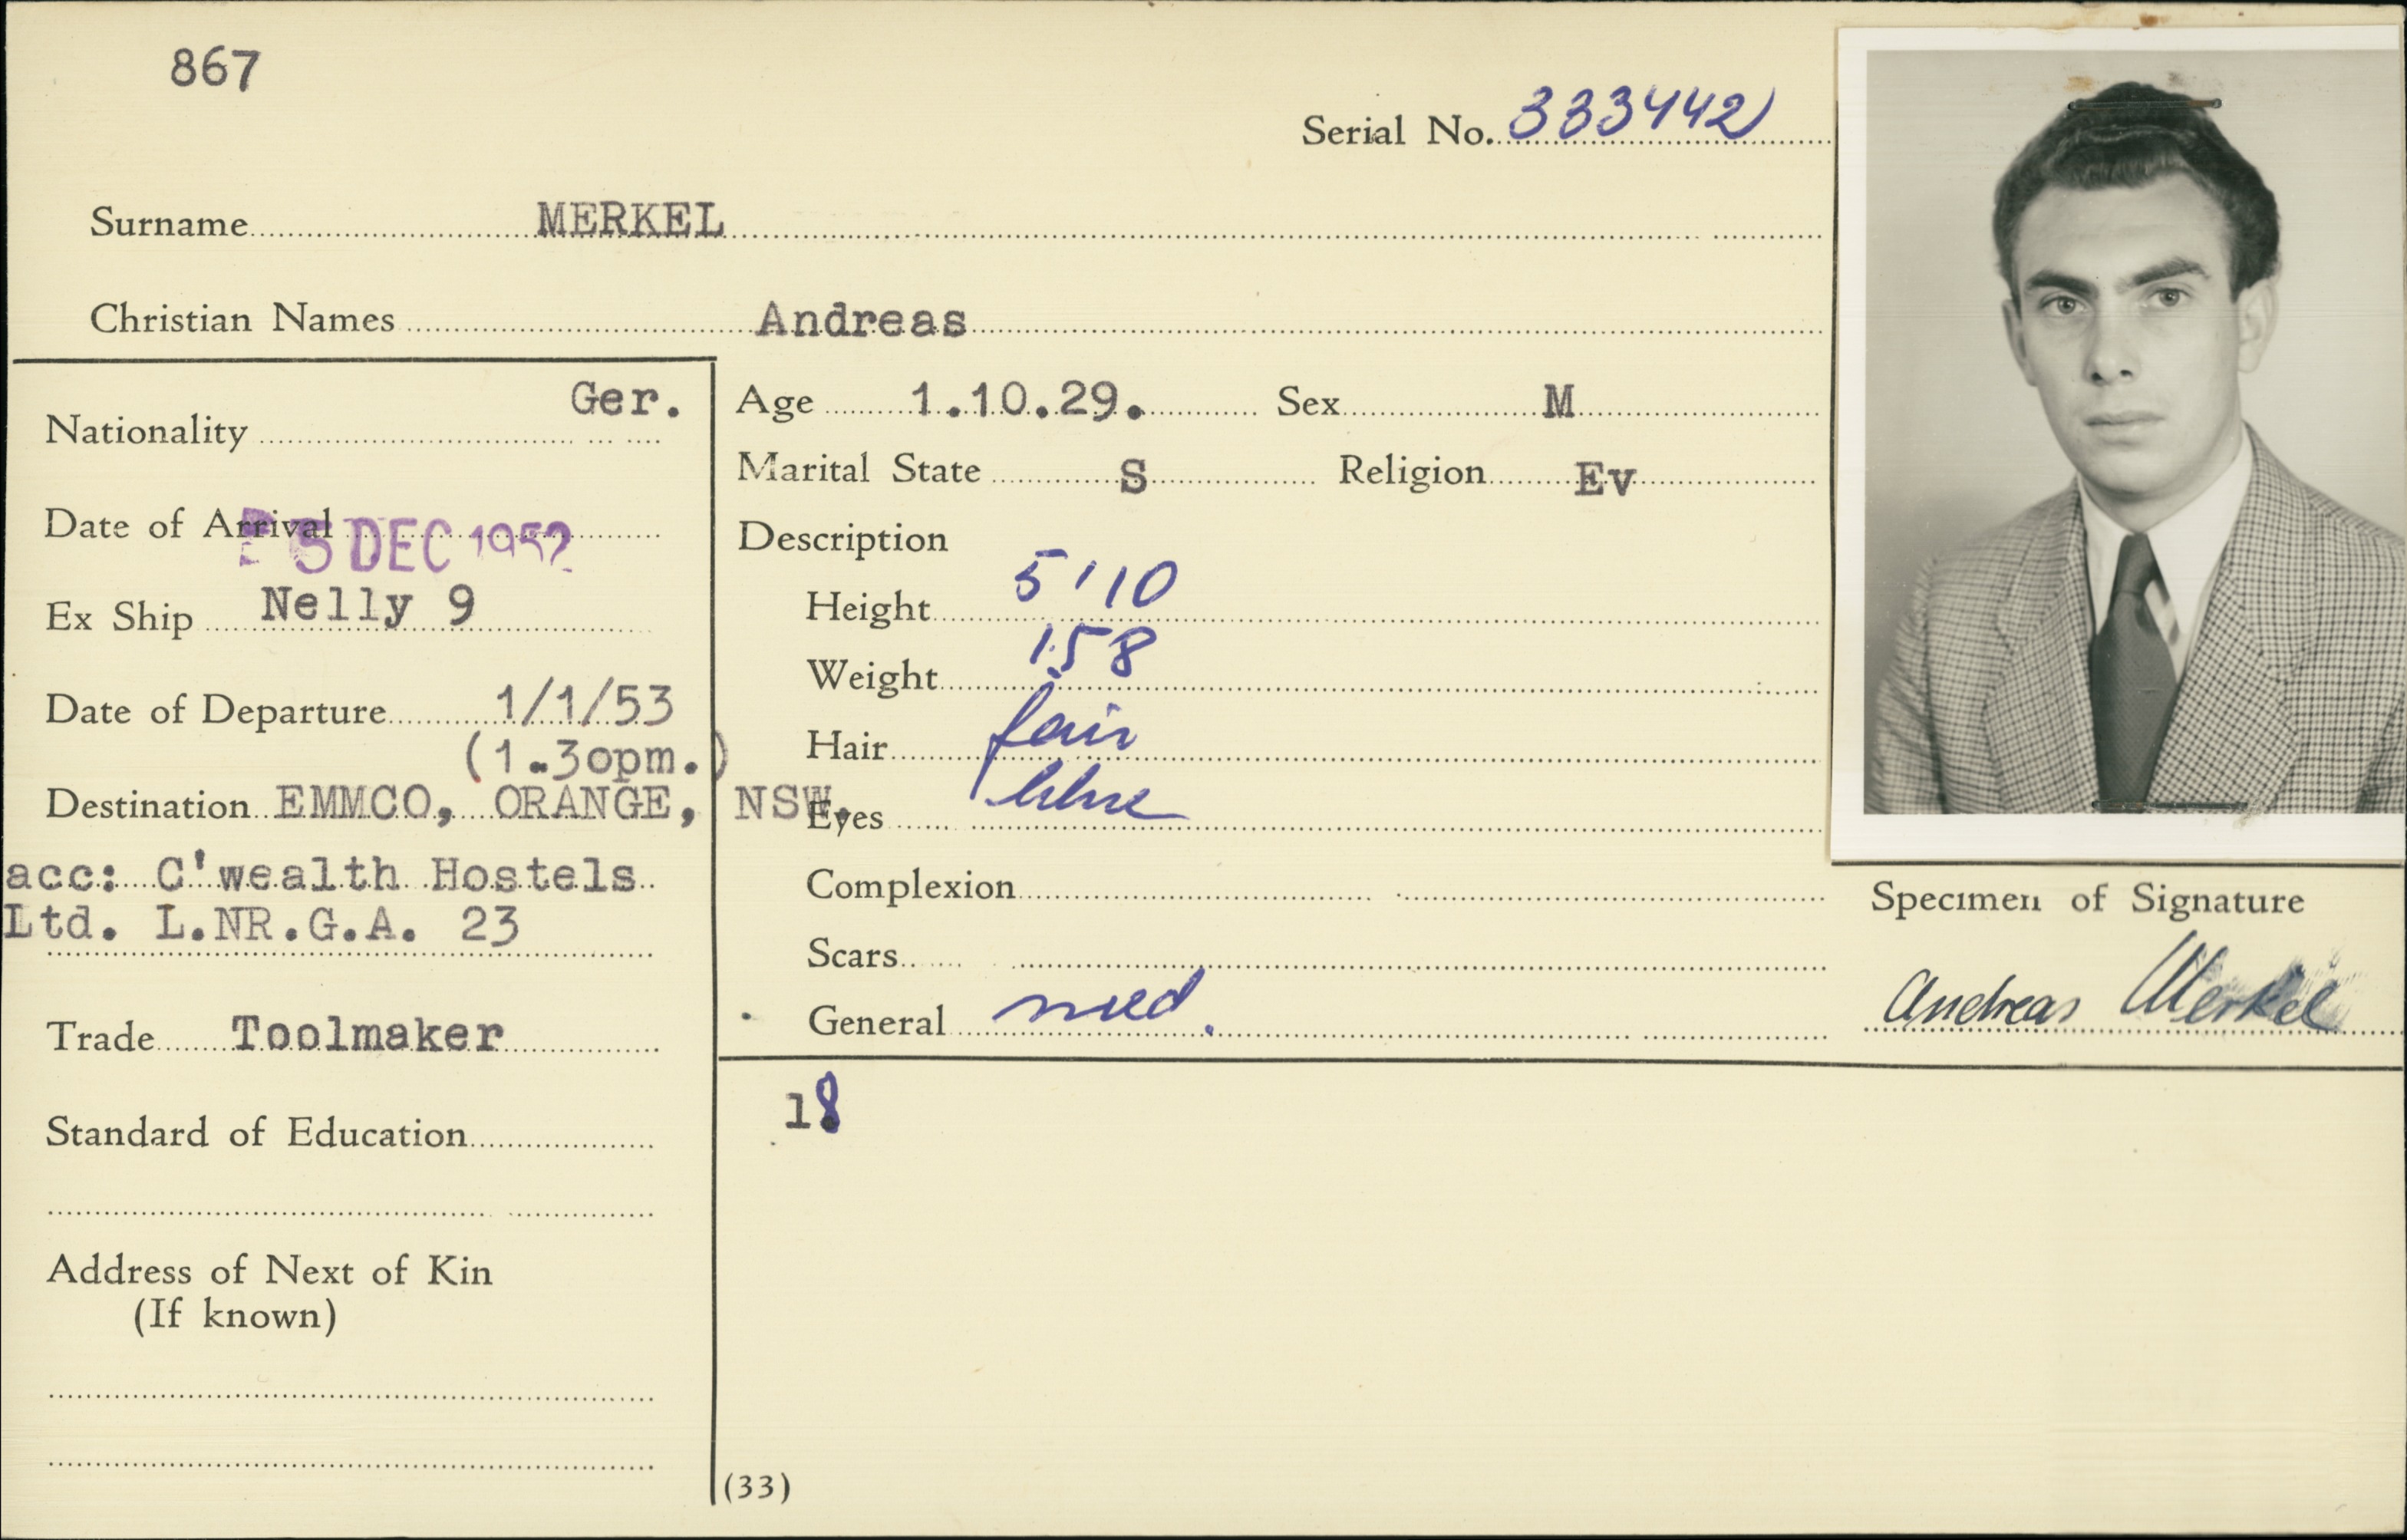 867
Serial No. 333442
Surname MERKEL
Christian Names Andreas
Nationality Ger.
Date of Arrival 5 DEC 1952
Ex Ship Nelly 9
Date of Departure 1/1/53
(1.30pm.)
Destination EMMCO, ORANGE, NSW.
acc: C'wealth Hostels
Ltd. L.NR.G.A. 23
Trade Toolmaker
Standard of Education
Address of Next of Kin
(If known)
Age 1.10.29. Sex M
Marital State S Religion Ev
Description
Height 5'10
Weight 158
Hair fair
Eyes blue
Complexion
Scars
General med.
18
(33)
Specimen of Signature
Andreas Merkel